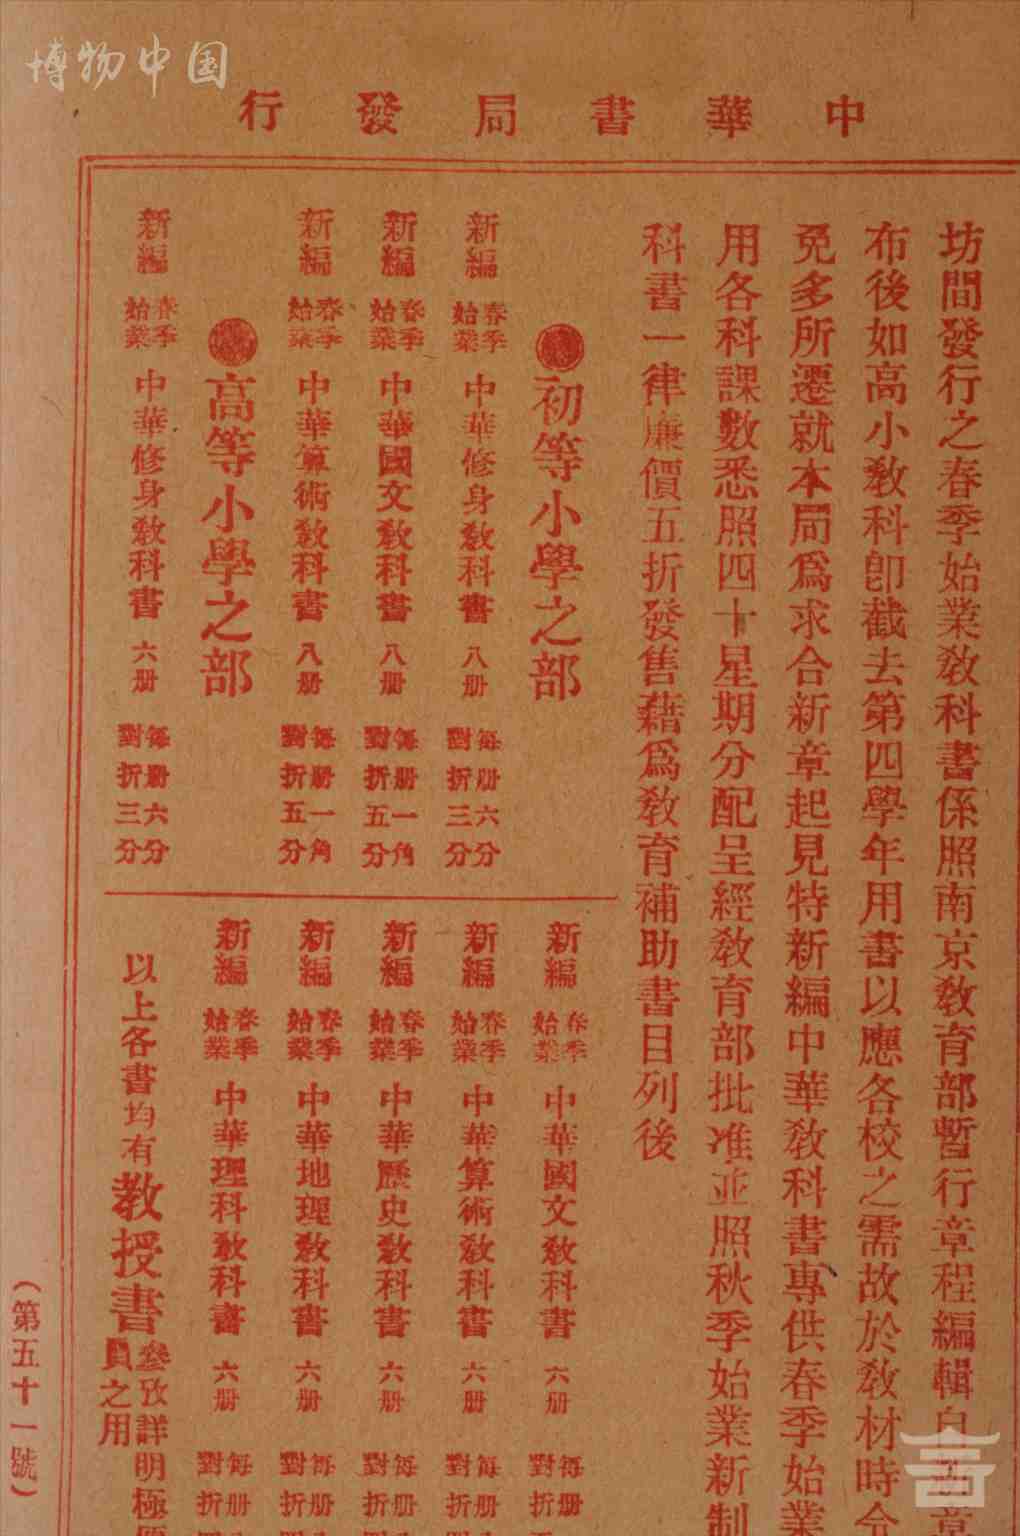 博物中国
中華書局發行
坊間發行之春季始業教科書係照南京教育部暫行章程編輯自
布後如高小教科卽截去第四學年用書以應各校之需故於教材時令
免多所遷就本局爲求合新章起見特新編中華教科書專供春季始業
用各科課數悉照四十星期分配呈經教育部批准並照秋季始業新制
科書一律廉價五折發售藉爲教育補助書目列後
初等小學之部
新編春季始業中華修身教科書八册每册六分對折三分
新編春季始業中華國文教科書八册每册一角對折五分
新編春季始業中華算術教科書八册每册一角對折五分
高等小學之部
新編春季始業中華修身教科書六册每册六分對折三分
新編春季始業中華國文教科書六册每册對折
新編春季始業中華算術教科書六册每册對折
新編春季始業中華歷史教科書六册每册對折
新編春季始業中華地理教科書六册每册對折
新編春季始業中華理科教科書六册每册對折
以上各書均有教授書參攷詳明極員之用
(第五十一號)